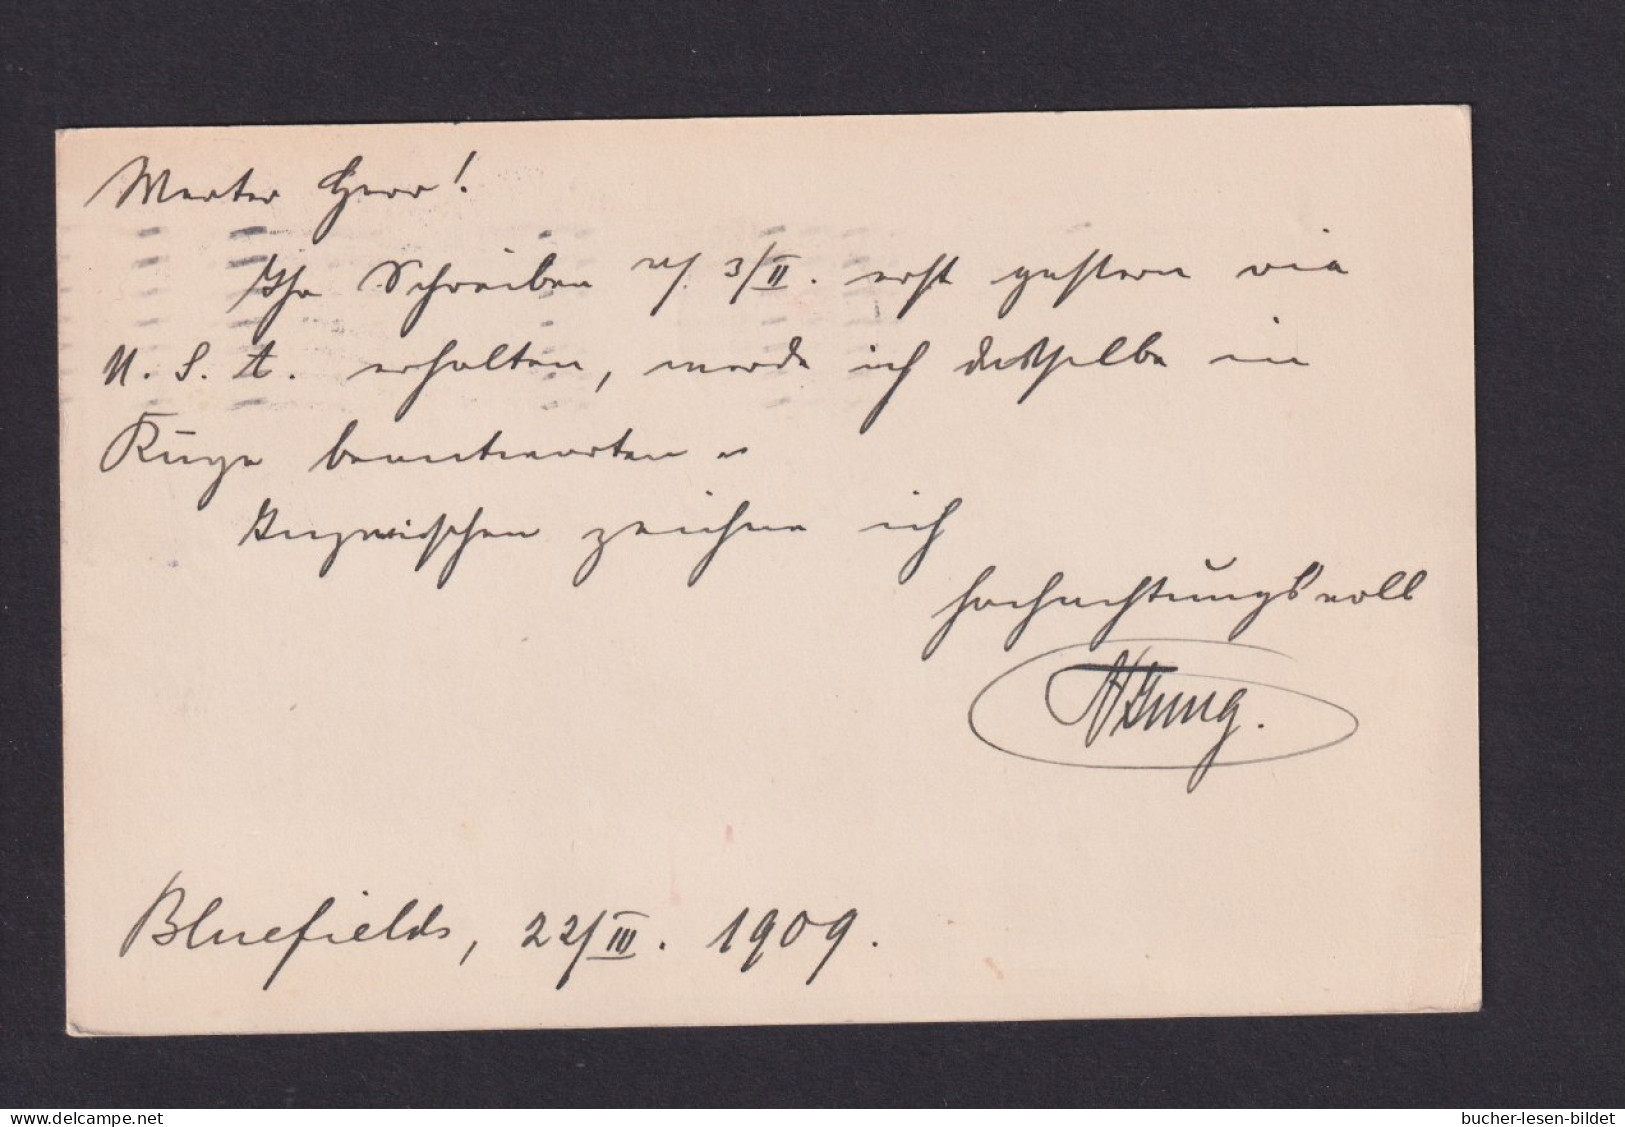 Werter Herr!
Ihr Schreiben v/. 3/II. erst gestern via
U. S. A. erhalten, werde ich dasselbe in
Kürze beantworten.
Inzwischen zeichne ich
hochachtungsvoll
Jung.
Bluefields, 22/III. 1909.
www.delcampe.net
bucher-lesen-bildet